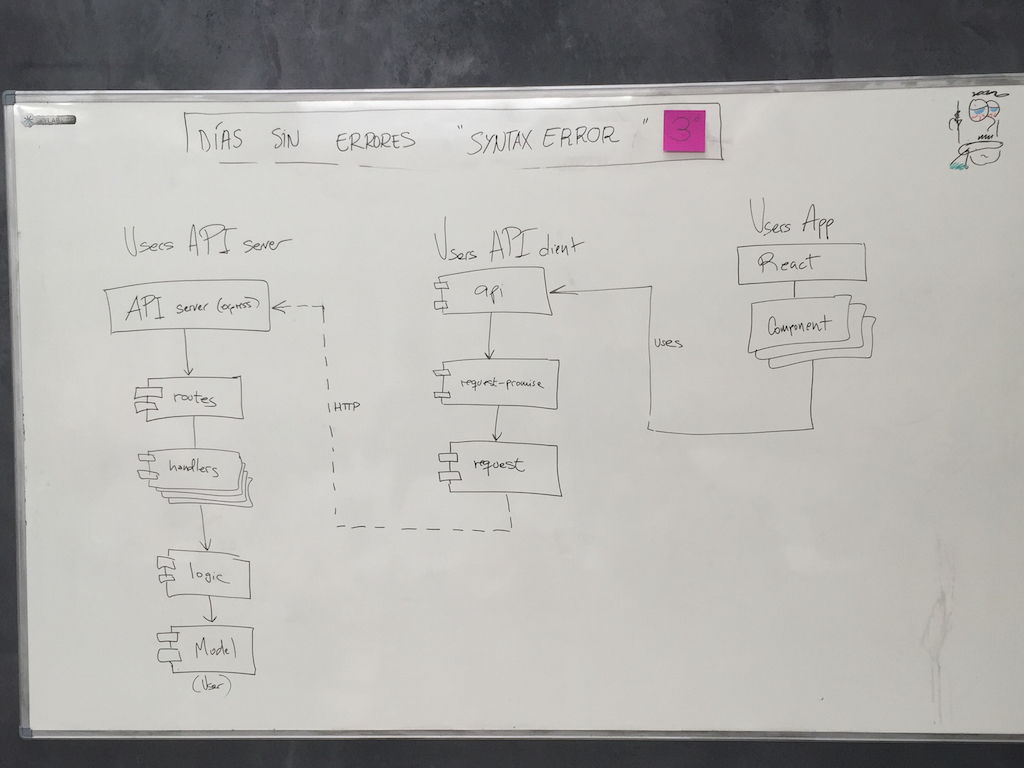 DÍAS SIN ERRORES "SYNTAX ERROR" 3
Users API server
API server (express)
routes
handlers
logic
Model
(User)
HTTP
Users API client
api
request-promise
request
uses
Users App
React
Component